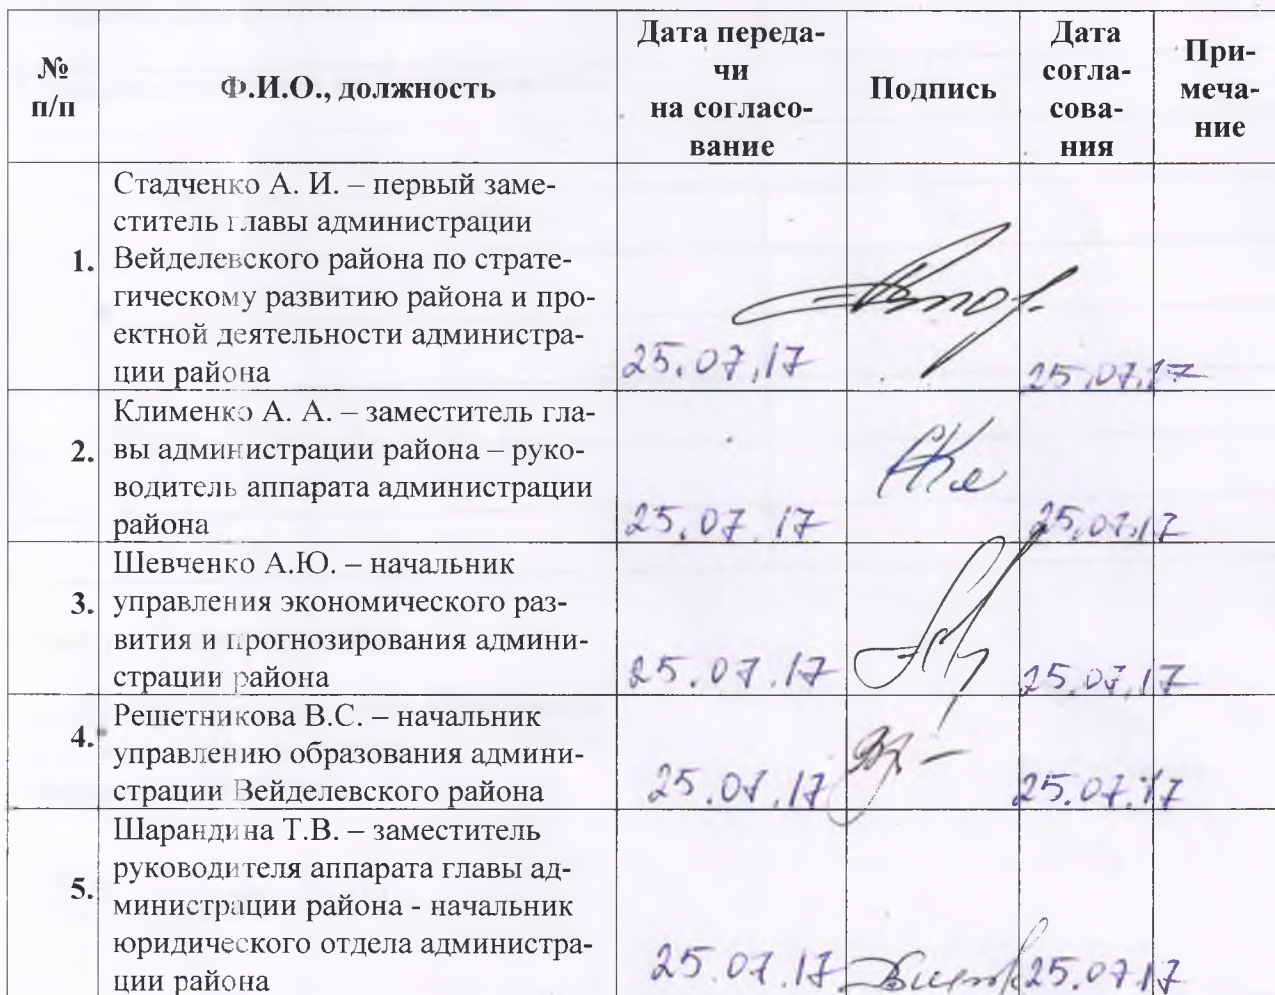 №
п/п
Ф.И.О., должность
Дата переда-
чи
на согласо-
вание
Подпись
Дата
согла-
сова-
ния
При-
меча-
ние
1.
Стадченко А. И. – первый заме-
ститель главы администрации
Вейделевского района по страте-
гическому развитию района и про-
ектной деятельности администра-
ции района
25.07.17
25.07.17
2.
Клименко А. А. – заместитель гла-
вы администрации района – руко-
водитель аппарата администрации
района
25.07.17
25.07.17
3.
Шевченко А.Ю. – начальник
управления экономического раз-
вития и прогнозирования админи-
страции района
25.07.17
25.07.17
4.
Решетникова В.С. – начальник
управлению образования админи-
страции Вейделевского района
25.07.17
25.07.17
5.
Шарандина Т.В. – заместитель
руководителя аппарата главы ад-
министрации района - начальник
юридического отдела администра-
ции района
25.07.17
25.07.17